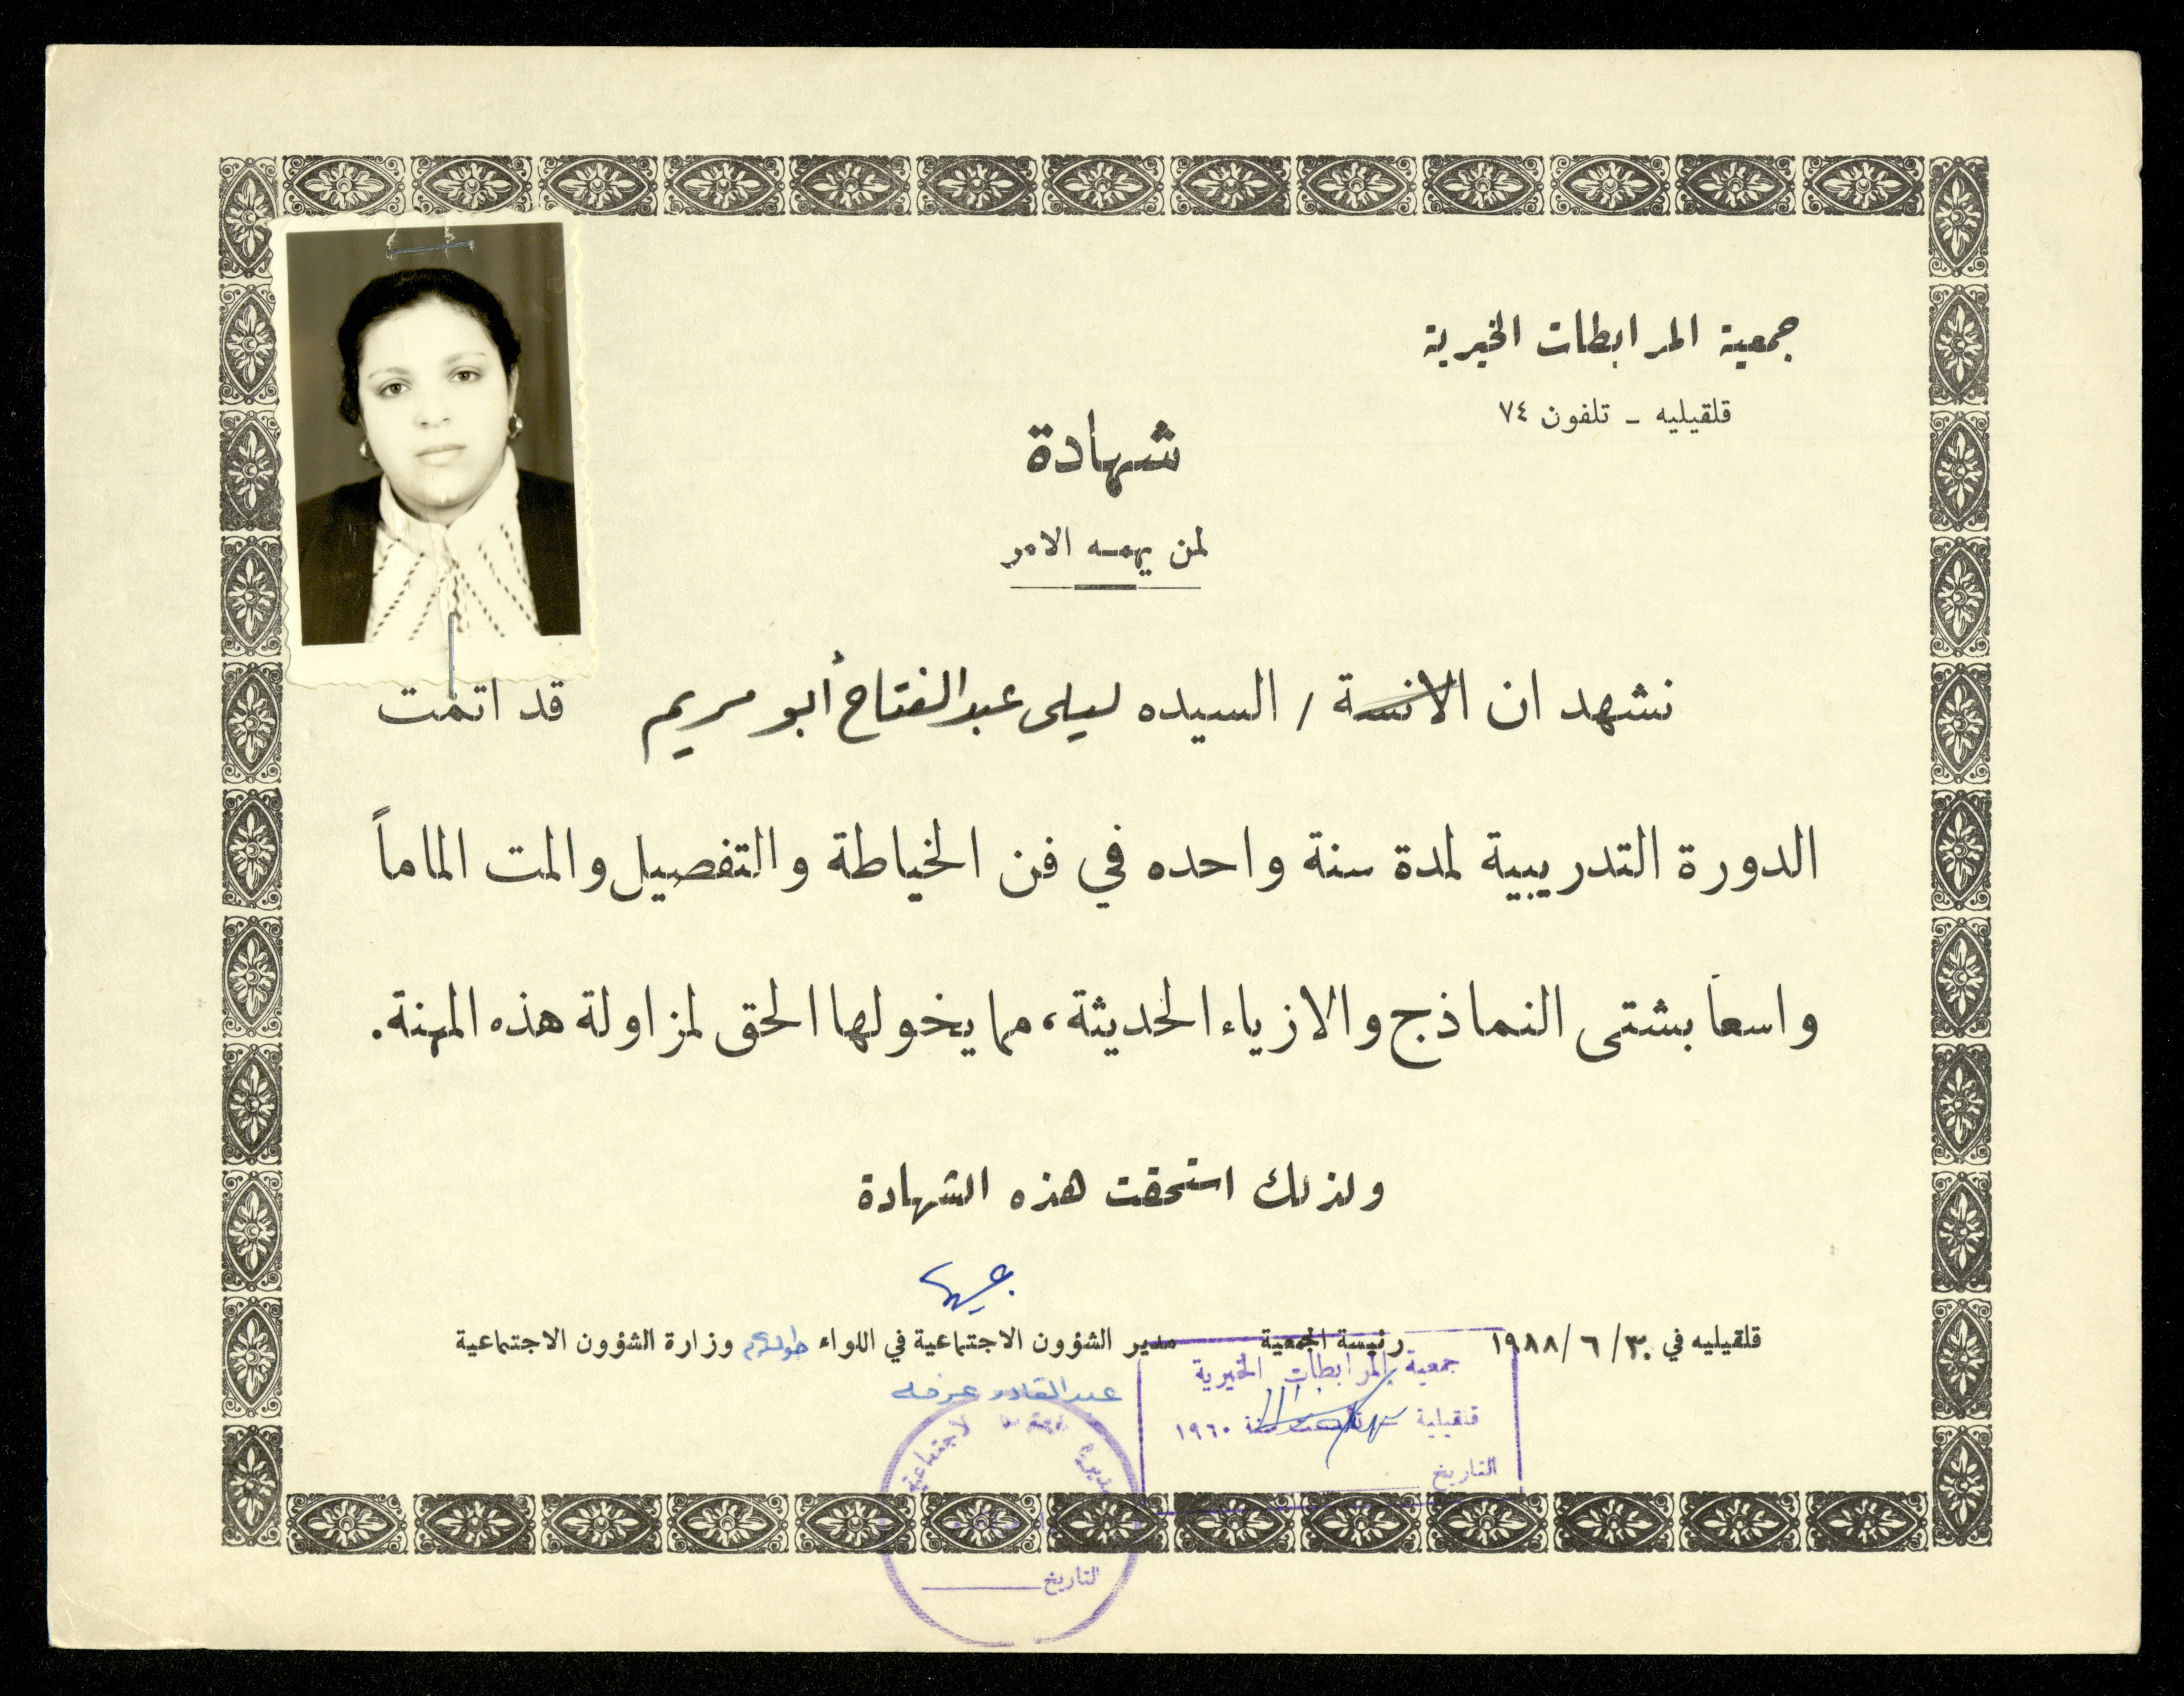 جمعية المرابطات الخيرية
قلقيليه - تلفون ٧٤
شهادة
لمن يهمه الامر
نشهد ان الانسة / السيده ليلى عبد الفتاح أبو مريم قد اتمت
الدورة التدريبية لمدة سنة واحده في فن الخياطة والتفصيل والمت الماماً
واسعاً بشتى النماذج والازياء الحديثة، مما يخولها الحق لمزاولة هذه المهنة.
ولذلك استحقت هذه الشهادة
قلقيليه في ٣٠/٦/١٩٨٨ رئيسة الجمعية مدير الشؤون الاجتماعية في اللواء طولكرم وزارة الشؤون الاجتماعية
جمعية المرابطات الخيرية
قلقيلية - تأسست سنة ١٩٦٠
التاريخ
عبد القادر
مديرية الاجتماعية
التاريخ